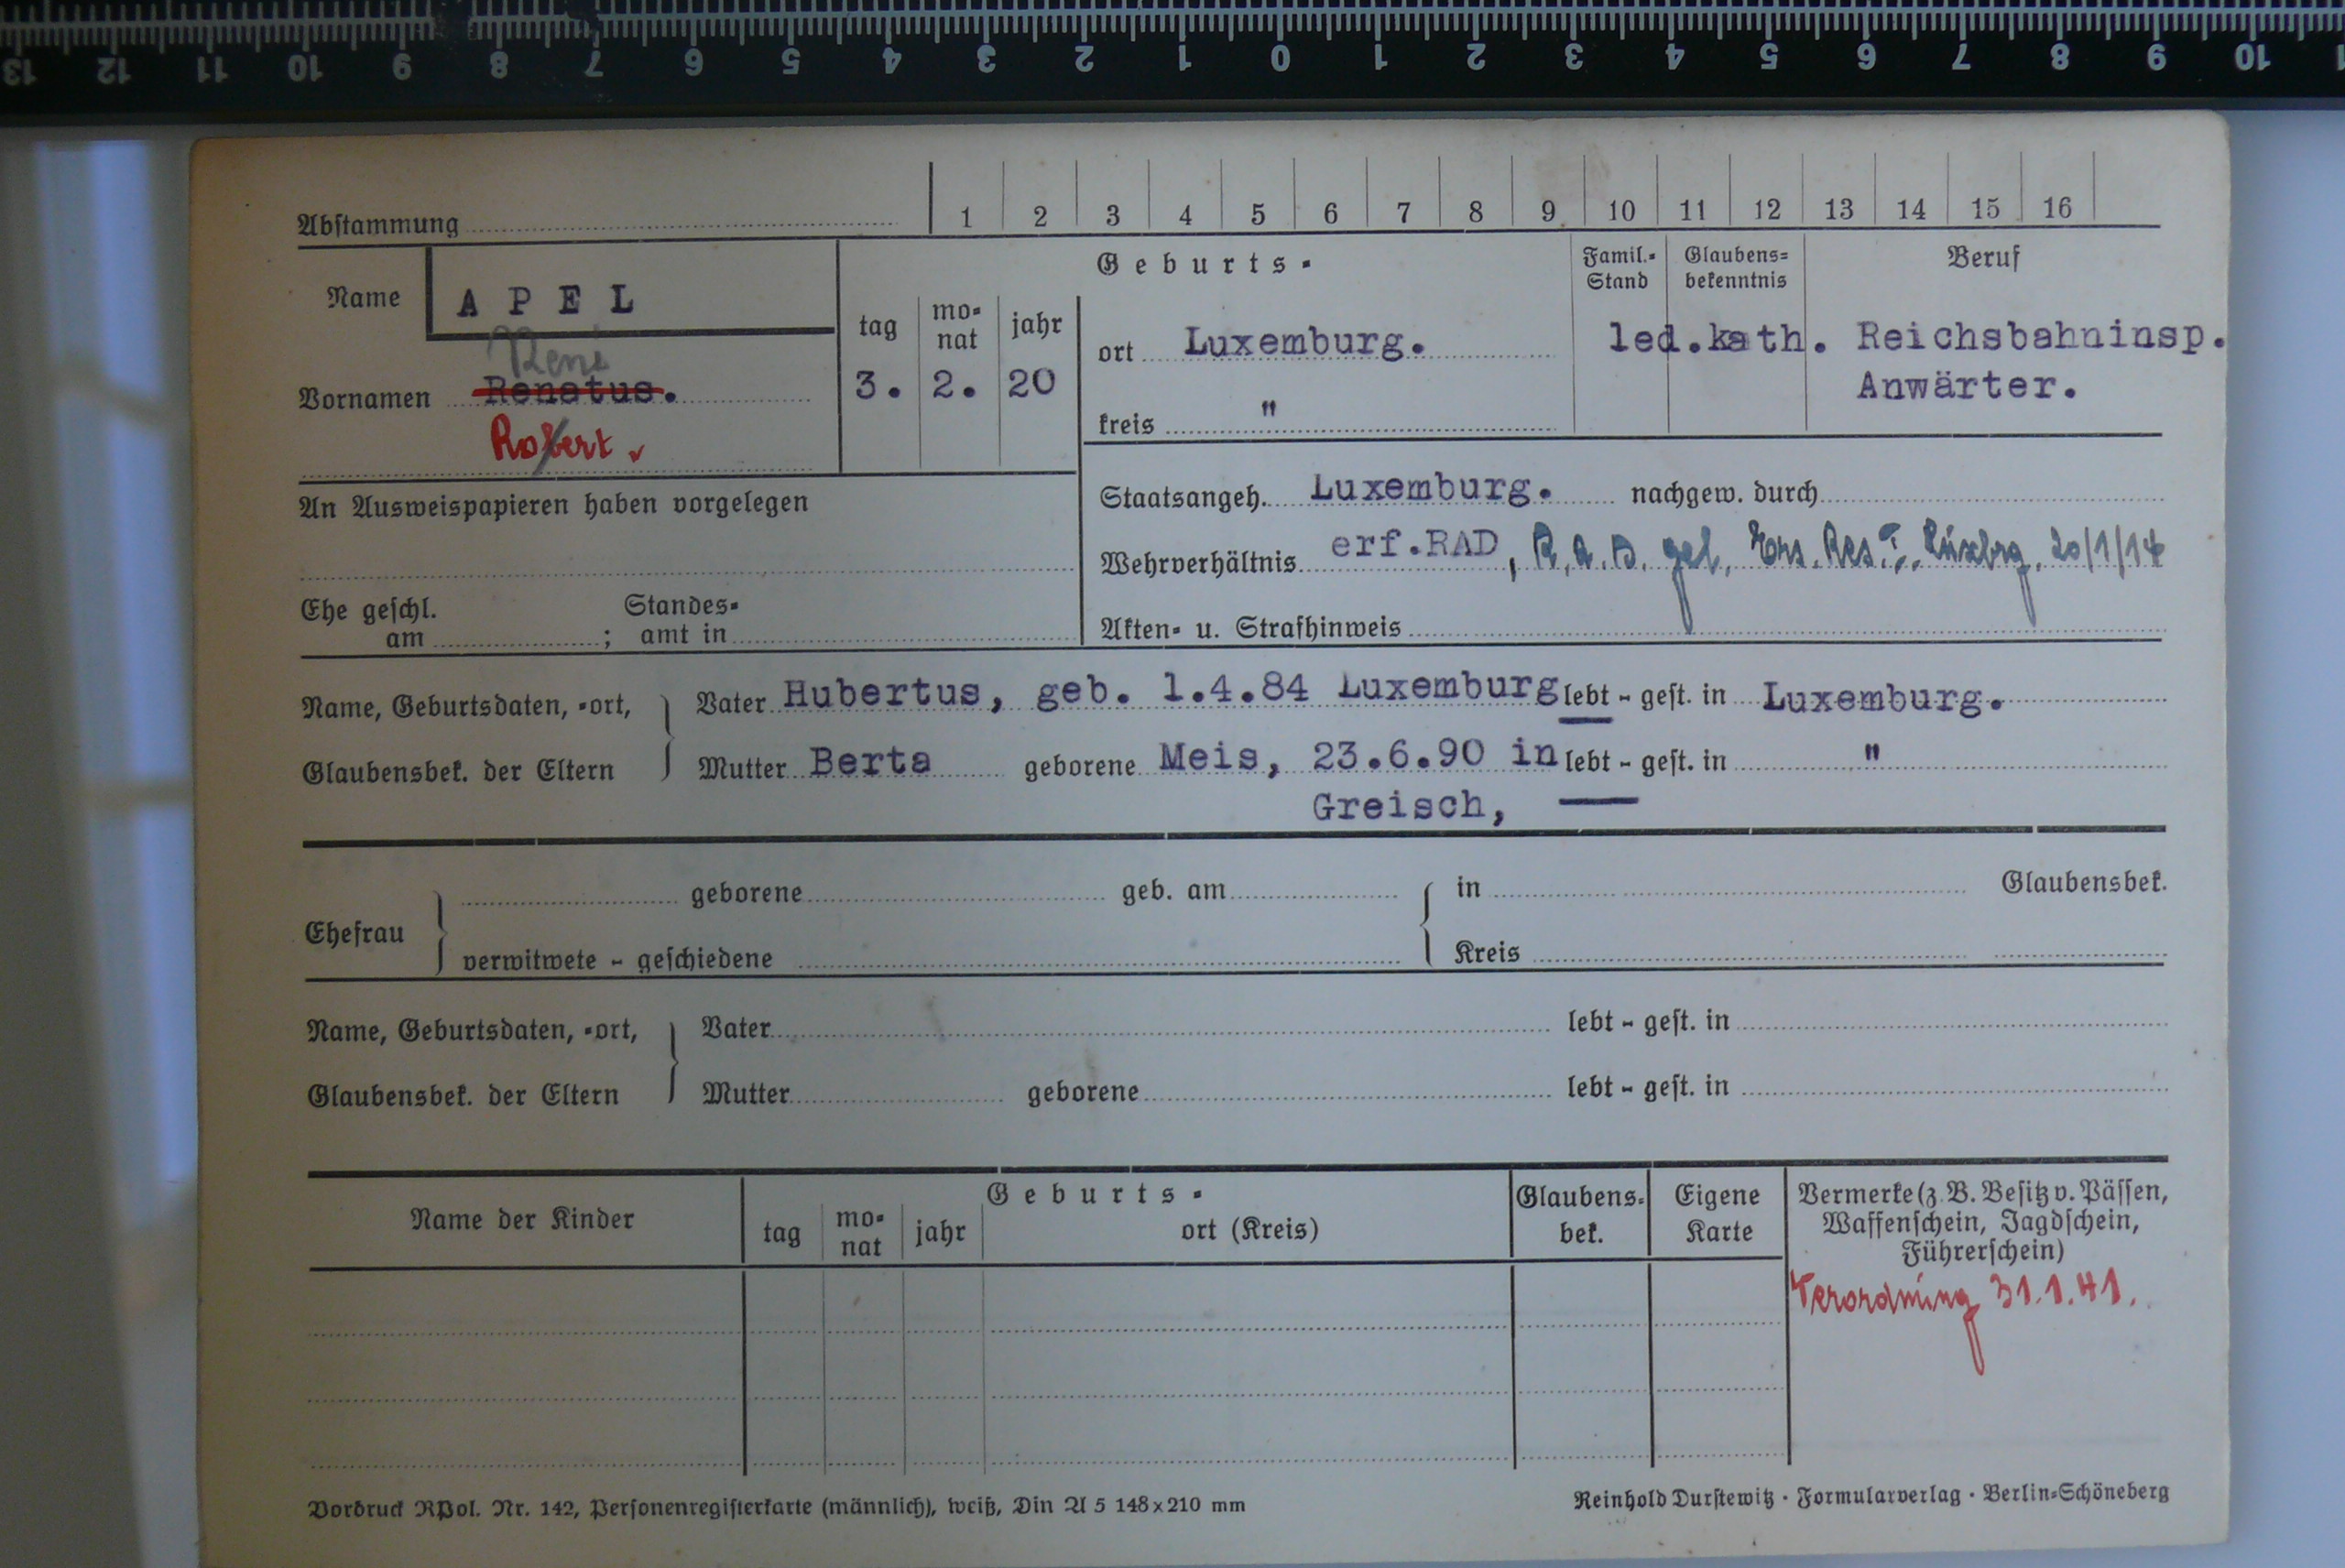 13 12 11 10 9 8 7 6 5 4 3 2 1 0 1 2 3 4 5 6 7 8 9 10
Abstammung 1 2 3 4 5 6 7 8 9 10 11 12 13 14 15 16
Name APEL
René
Vornamen Renatus.
Robert
Geburts-
tag mo-nat jahr
3. 2. 20
ort Luxemburg.
kreis "
Famil.-Stand
led.
Glaubens-bekenntnis
kath.
Beruf
Reichsbahninsp.
Anwärter.
An Ausweispapieren haben vorgelegen
Staatsangeh. Luxemburg. nachgew. durch
Wehrverhältnis erf.RAD, R.A.D. gel. Ers. Res. I, Luxbrg.
Ehe geschl. am ; Standes-amt in
Akten- u. Strafhinweis
Name, Geburtsdaten, -ort, Vater Hubertus, geb. 1.4.84 Luxemburg lebt - gest. in Luxemburg.
Glaubensbek. der Eltern Mutter Berta geborene Meis, 23.6.90 in lebt - gest. in "
Greisch,
Ehefrau
geborene geb. am in Glaubensbek.
verwitwete - geschiedene Kreis
Name, Geburtsdaten, -ort, Vater lebt - gest. in
Glaubensbek. der Eltern Mutter geborene lebt - gest. in
Name der Kinder
Geburts-
tag mo-nat jahr ort (Kreis)
Glaubens-bek.
Eigene Karte
Vermerke (z. B. Besitz v. Pässen,
Waffenschein, Jagdschein,
Führerschein)
Verordnung 31.1.41.
Vordruck RPol. Nr. 142, Personenregisterkarte (männlich), weiß, Din A 5 148×210 mm
Reinhold Durstewitz · Formularverlag · Berlin-Schöneberg